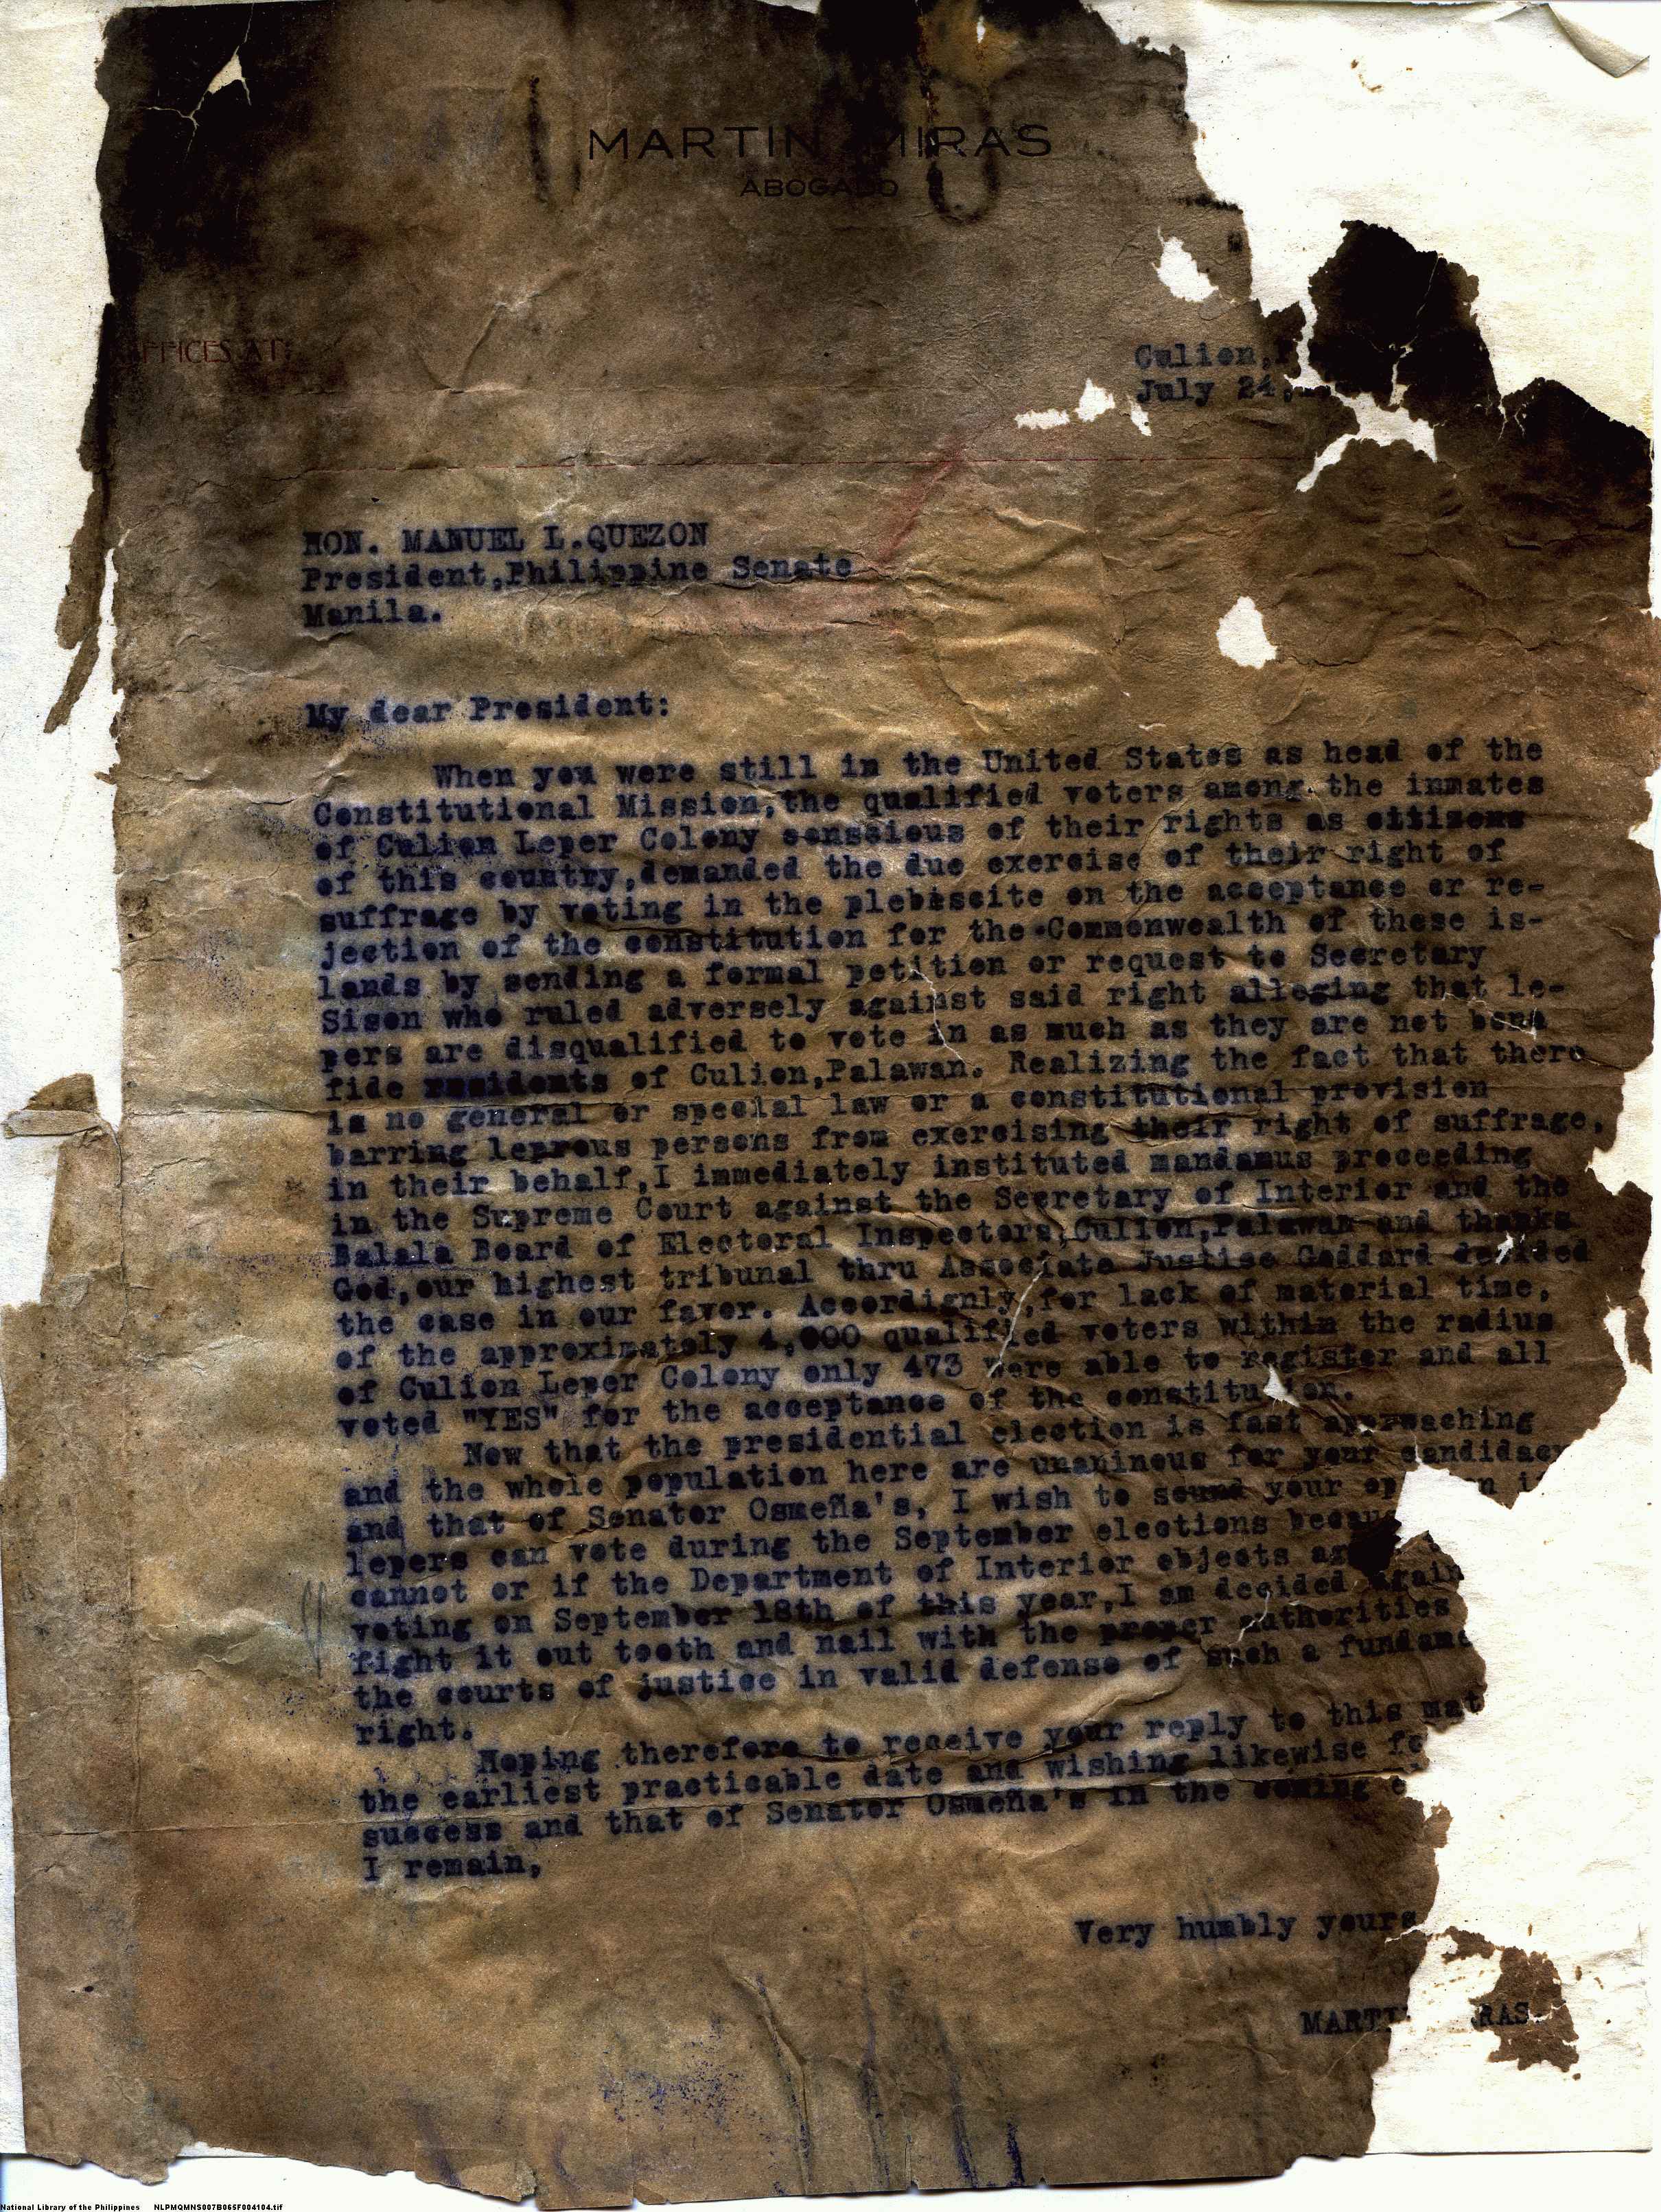 MARTIN MIRAS
ABOGADO
OFFICES AT:
Culion,
July 24,
HON. MANUEL L.QUEZON
President,Philippine Senate
Manila.
My dear President:
When you were still in the United States as head of the
Constitutional Mission,the qualified voters among the inmates
of Culion Leper Colony conscious of their rights as citizens
of this country,demanded the due exercise of their right of
suffrage by voting in the plebiscite on the acceptance or re-
jection of the constitution for the Commonwealth of these is-
lands by sending a formal petition or request to Secretary
Sison who ruled adversely against said right alleging that le-
pers are disqualified to vote in as much as they are not bona
fide residents of Culion,Palawan. Realizing the fact that there
is no general or special law or a constitutional provision
barring leprous persons from exercising their right of suffrage,
in their behalf,I immediately instituted mandamus proceeding
in the Supreme Court against the Secretary of Interior and the
Balala Board of Electoral Inspectors,Culion,Palawan and thanks
God,our highest tribunal thru Associate Justice Goddard decided
the case in our favor. Accordignly,for lack of material time,
of the approximately 4,000 qualified voters within the radius
of Culion Leper Colony only 473 were able to register and all
voted "YES" for the acceptance of the constitution.
Now that the presidential election is fast approaching
and the whole population here are unaninous for your candidacy
and that of Senator Osmeña's, I wish to sound your op n i
lepers can vote during the September elections becau
cannot or if the Department of Interior objects ag
voting on September 18th of this year,I am decided again
fight it out tooth and nail with the proper authorities
the courts of justice in valid defense of such a fundame
right.
Hoping therefore to receive your reply to this mat
the earliest practicable date and wishing likewise fo
success and that of Senator Osmeña's in the coming e
I remain,
Very humbly yours
MARTI RAS
National Library of the Philippines NLPMQMNS007B065F004104.tif